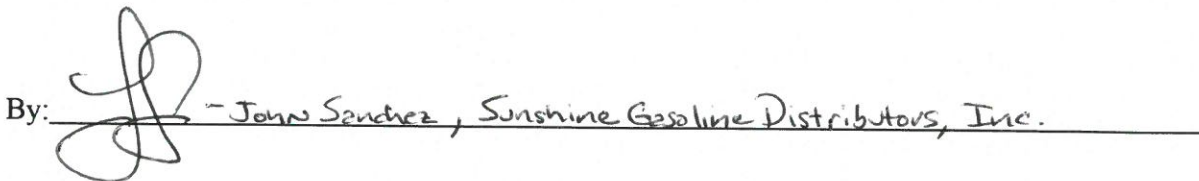 By: - John Sanchez, Sunshine Gasoline Distributors, Inc.